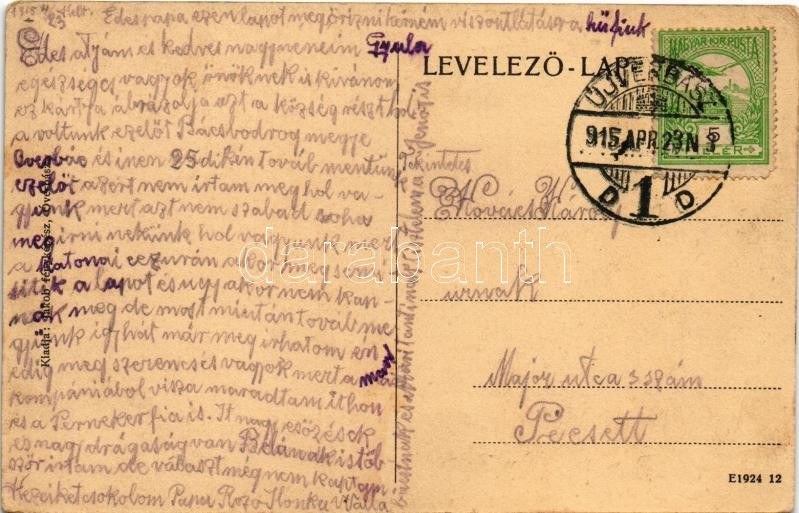 1915 4/23
Édesapa ezen lapot megőrizni kérném viszontlátásra hű fiuk
Gyula
Édes atyám es kedves nagyneneim
egészséges vagyok önöknek is kivánom
ez kártya ábrázolja azt a község részt hol
a voltunk ezelőt Bácsbodrog megye
Overbász és inen 25 dikén továb mentünk
ezelőt azért nem irtam meg hol va-
gyunk mert azt nem szabad soha
megirni nekünk hol vagyunk mert
a katonai cezurán abor megsemi
sitik a lapot és ugyakor nem kap-
nák meg de most miután továb me
gyünk igy hát már meg irhatom én
edig meg szerencsés vagyok mert a
kompániából visza maradtam itthon
és a Perneker fia is. It nagy esőzések
és nagy drágaság van Belának is töb
ször irtam de választ meg nem kaptam
Kezeiket csokolom Papa Rozo Ilonka
LEVELEZŐ-LAP
MAGYAR KIR. POSTA
5
FILLÉR
ÚJVERBÁSZ
915 APR. 23 N
D 1 D
Tekintetes
Kovács Károly
urnak
Major utca 3 szám
Pécsett
Kiadja: Jakob
E1924 12
darabanth